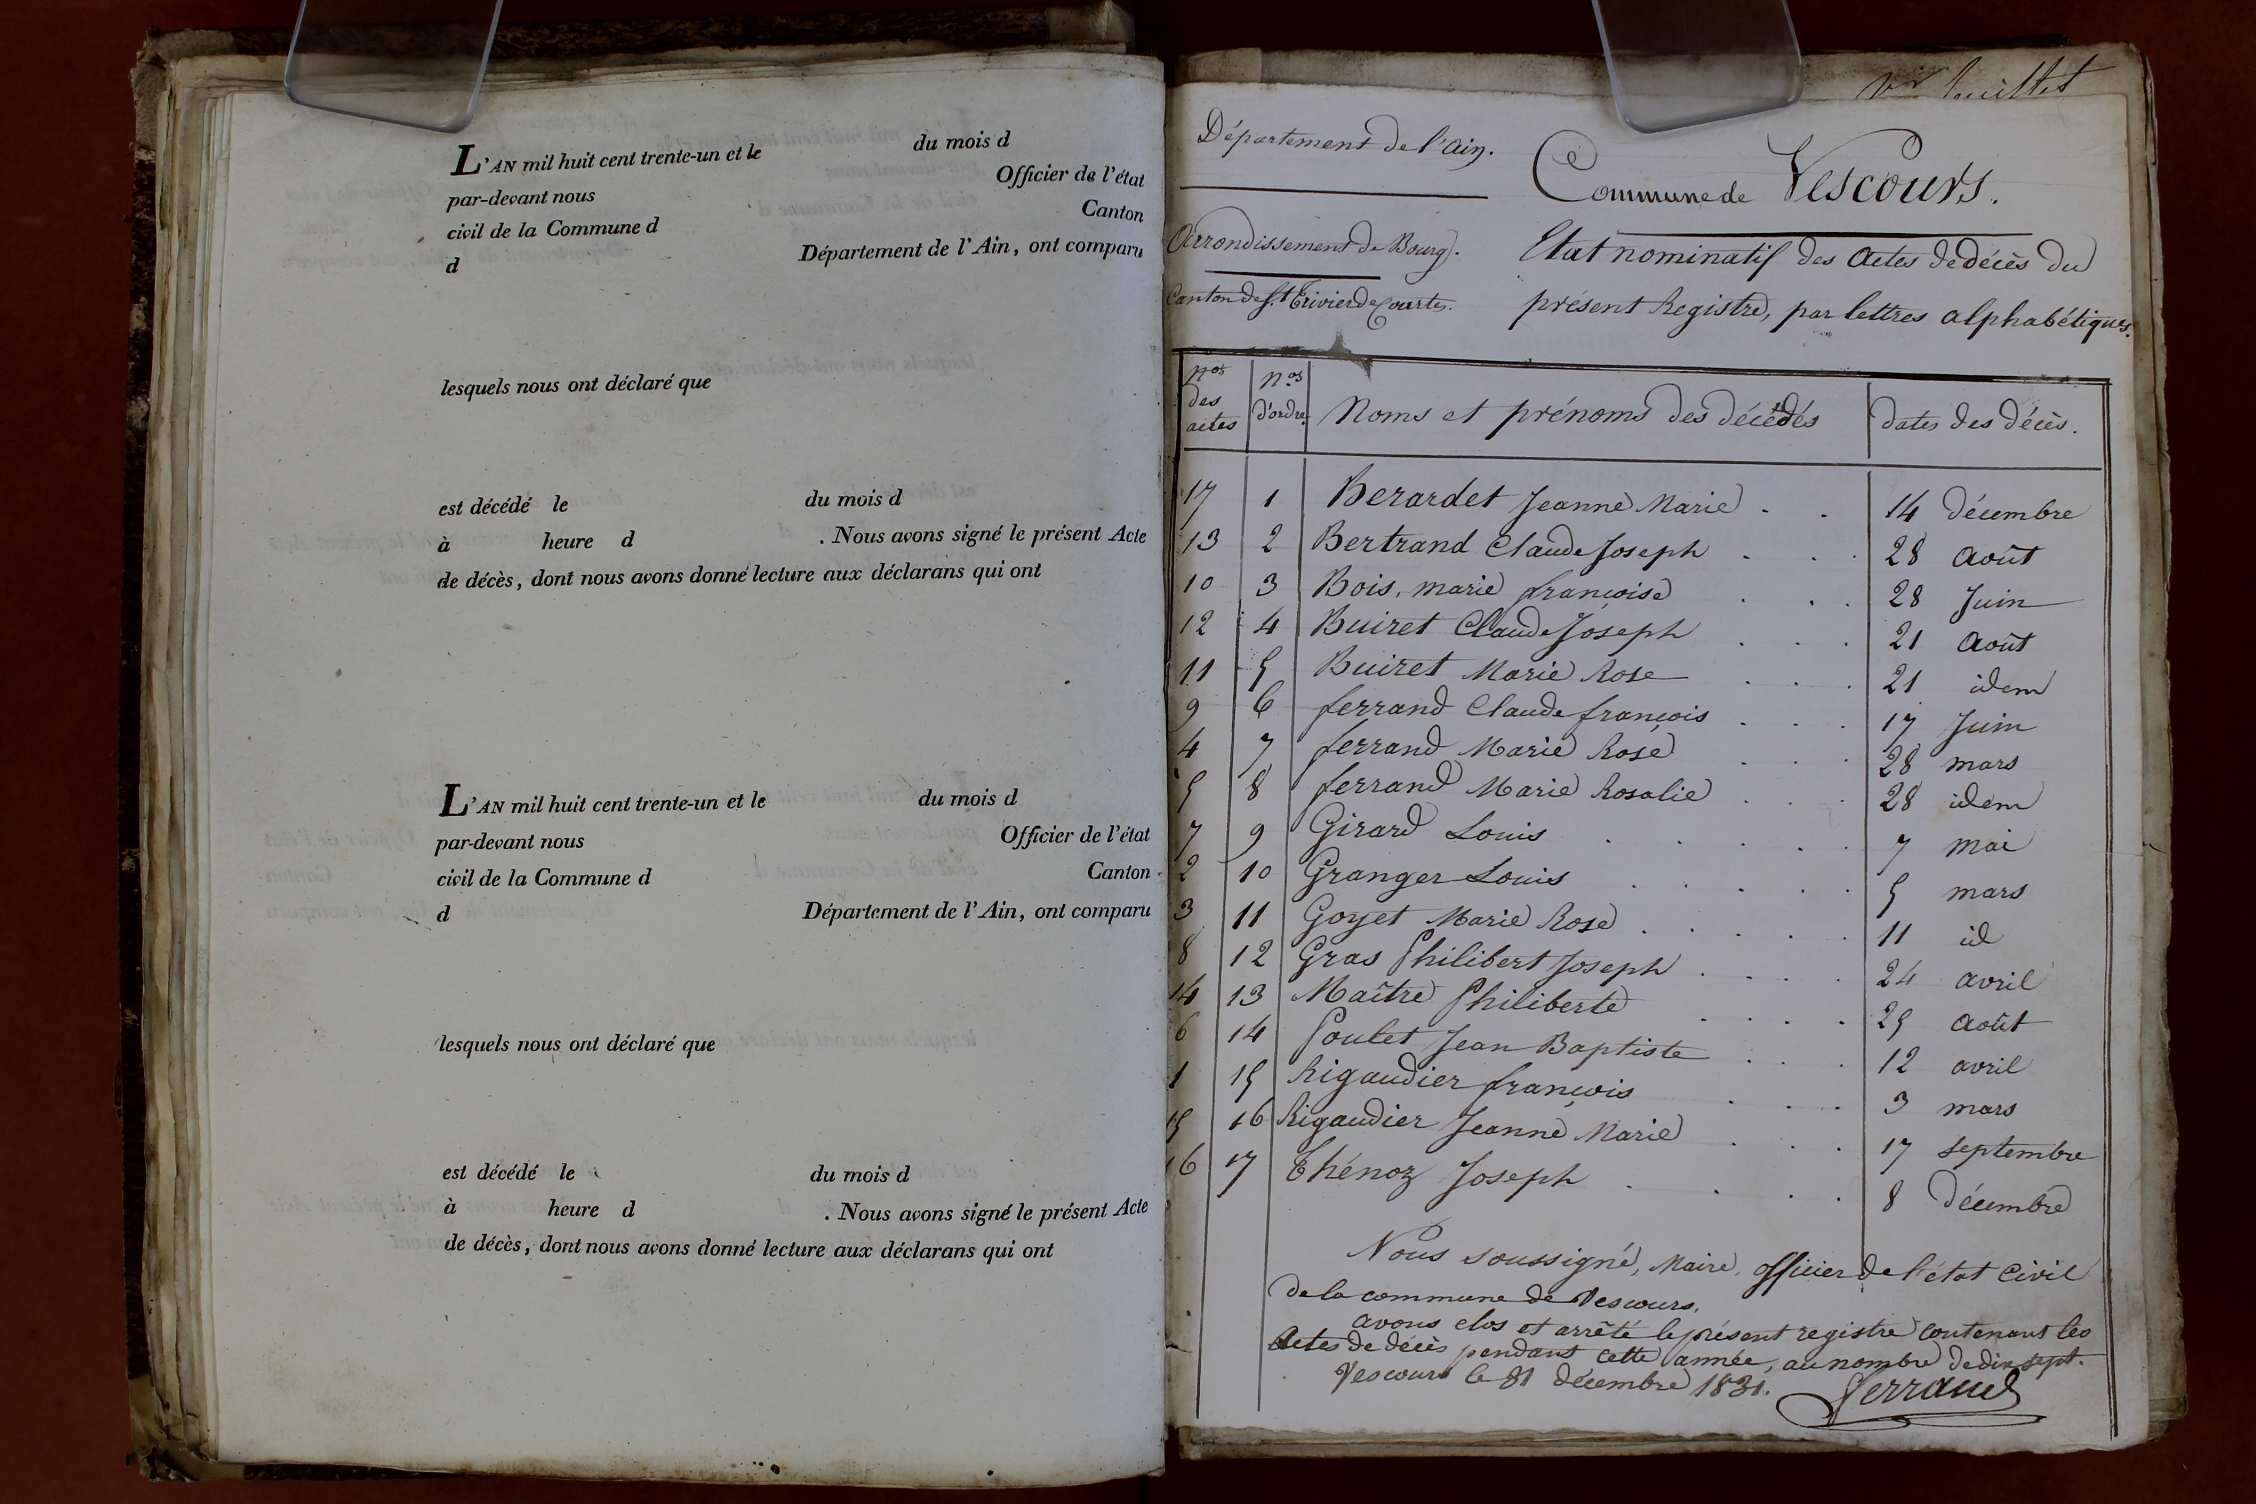 L'AN mil huit cent trente-un et le du mois d
par-devant nous Officier de l'état
civil de la Commune d Canton
d Département de l'Ain, ont comparu
lesquels nous ont déclaré que
est décédé le du mois d
à heure d . Nous avons signé le présent Acte
de décès, dont nous avons donné lecture aux déclarans qui ont
L'AN mil huit cent trente-un et le du mois d
par-devant nous Officier de l'état
civil de la Commune d Canton
d Département de l'Ain, ont comparu
lesquels nous ont déclaré que
est décédé le du mois d
à heure d . Nous avons signé le présent Acte
de décès, dont nous avons donné lecture aux déclarans qui ont
Département de l'Ain.
Commune de Vescours.
Arrondissement de Bourg.
Canton de St Trivier de Courtes.
Etat nominatif des actes de décès du
présent Registre, par lettres alphabétiques.
Nos des actes Nos d'ordre Noms et prénoms des décédés dates des décès.
17 1 Berardet Jeanne Marie 14 décembre
13 2 Bertrand Claude Joseph 28 août
10 3 Bois, marie françoise 28 Juin
12 4 Buiret Claude Joseph 21 août
11 5 Buiret Marie Rose 21 idem
9 6 ferrand Claude françois 17 Juin
4 7 ferrand Marie Rose 28 mars
5 8 ferrand Marie Rosalie 28 idem
7 9 Girard Louis 7 mai
2 10 Granger Louis 5 mars
3 11 Goyet Marie Rose 11 id
8 12 Gras Philibert Joseph 24 avril
14 13 Maître Philiberte 25 août
6 14 Poulet Jean Baptiste 12 avril
1 15 Rigaudier françois 3 mars
15 16 Rigaudier Jeanne Marie 17 septembre
16 17 Thénoz Joseph 8 décembre
Nous soussigné, Maire, officier de l'état Civil
de la commune de Vescours,
avons clos et arrêté le présent registre contenant les
Actes de décès pendant cette année, au nombre de dix sept.
Vescours le 31 décembre 1831.
Ferrand